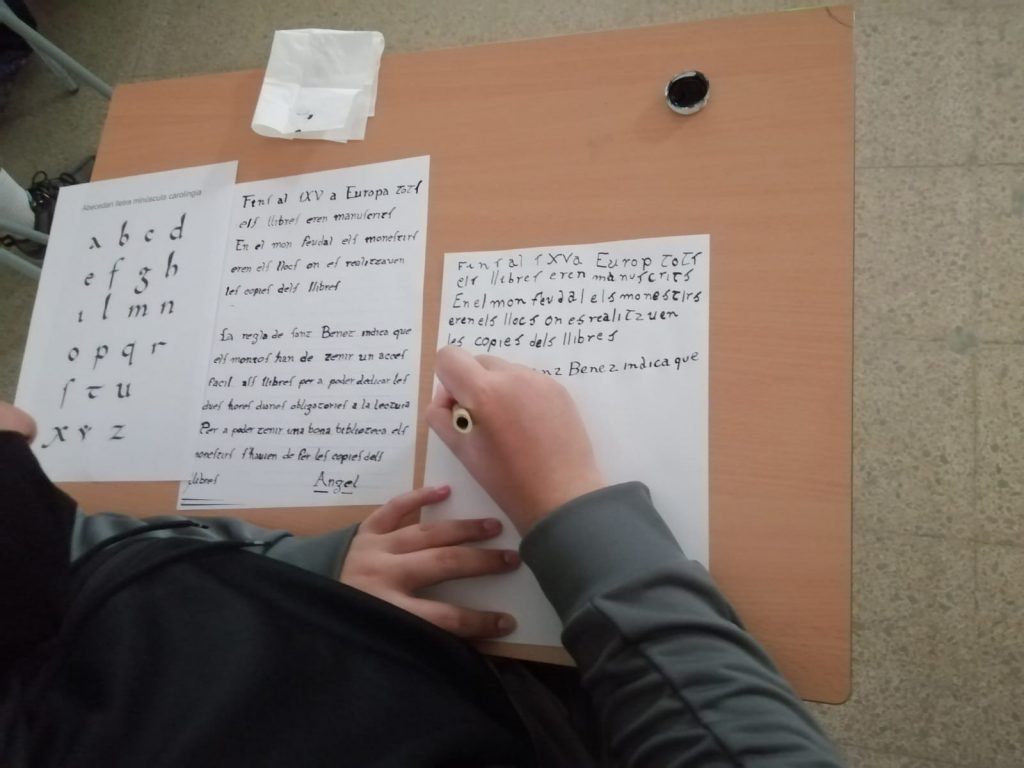 Abecedari lletra minúscula carolíngia
a b c d
e f g h
ı l m n
o p q r
ſ τ u
x v z
Fins al ſXV a Europa totſ
elſ llibreſ eren manuſcritſ
En el mon feudal elſ moneſtirſ
eren elſ llocſ on eſ realitzaven
leſ copieſ delſ llibreſ
La regla de ſant Benet indica que
elſ monjoſ han de tenir un acceſ
facil alſ llibreſ per a poder dedicar leſ
dueſ horeſ diareſ obligatorieſ a la lectura
Per a poder tenir una bona biblioteca elſ
moneſtirſ ſ'havien de fer leſ copieſ delſ
llibreſ
Angel
Finſ al ſXV a Europ totſ
elſ llibreſ eren manuſcritſ
En el mon feudal elſ moneſtirſ
eren elſ llocſ on eſ realitzuen
leſ copieſ delſ llibreſ
Benez indica que